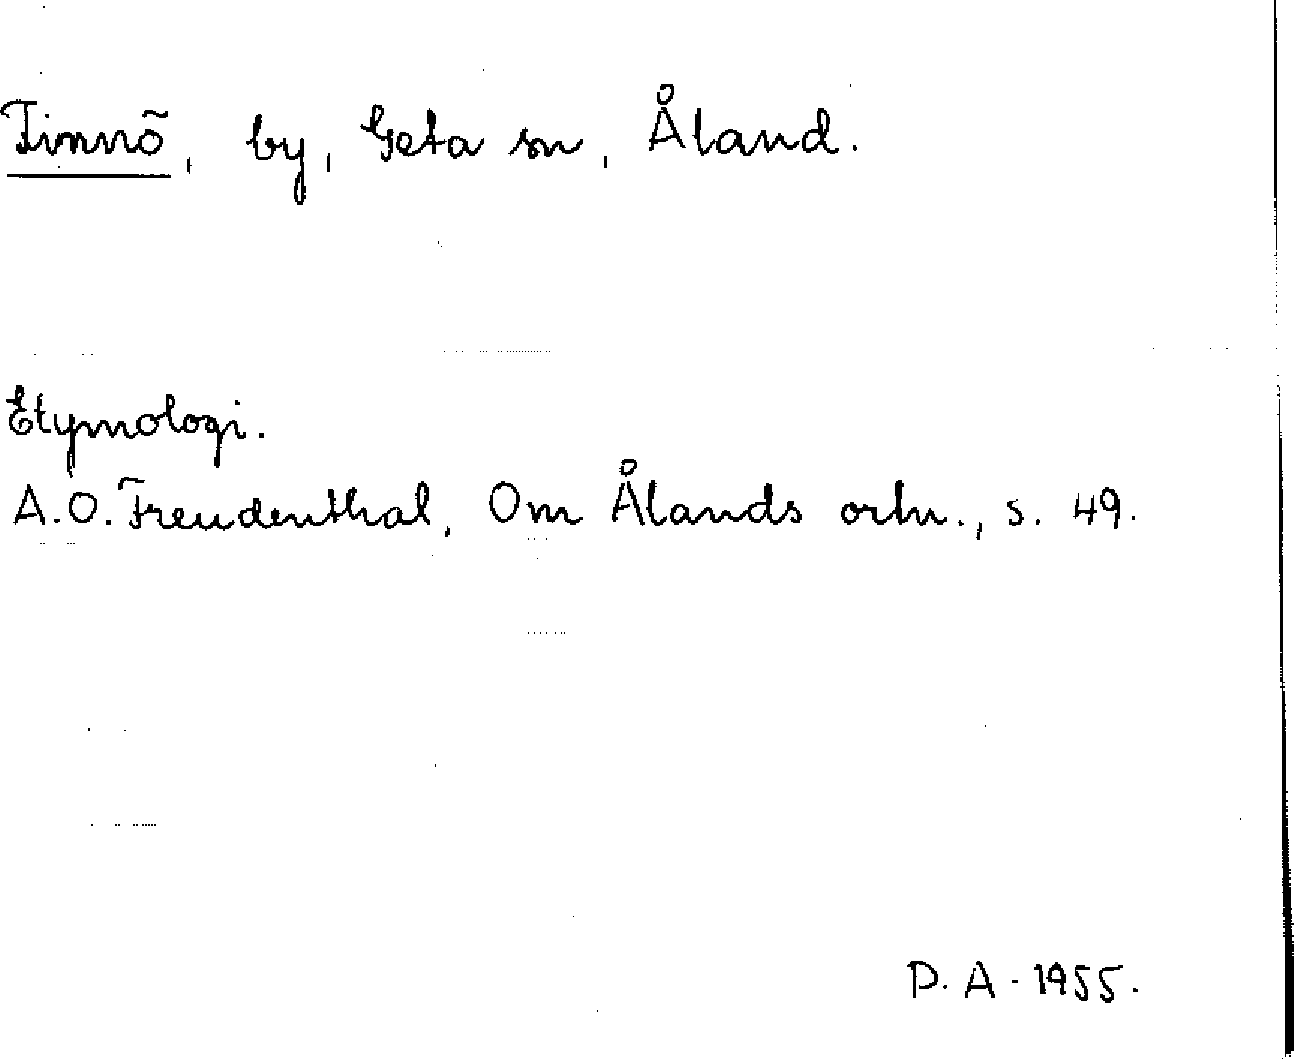 Finnö, by, Geta sn, Åland.
Etymologi.
A.O. Freudenthal, Om Ålands ortn., s. 49.
P. A. 1955.